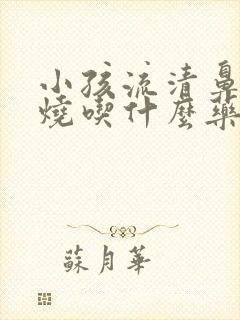 小孩流清鼻
燒喫什麼藥
蘇月華